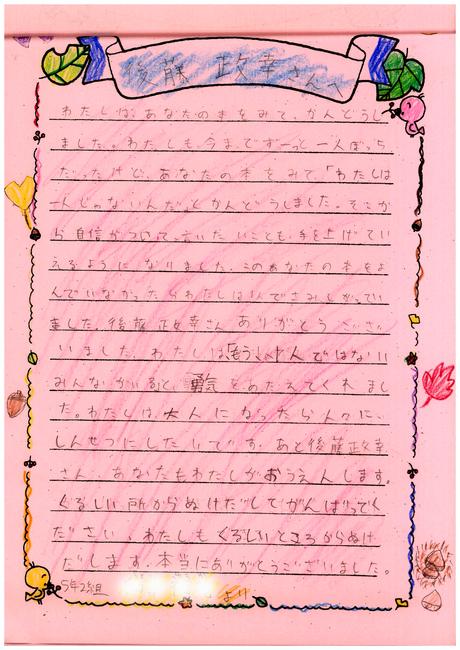 後藤 政幸さんへ
わたしは、あなたの本をみて、かんどうし
ました。わたしも今まで ずーっと一人ぼっち
だったけど、あなたの本をみて、「わたしは
一人じゃないんだ」とかんどうしました。そこか
ら自信がついて、言いたいことも、手を上げてい
えるようになりました。このあなたの本をよ
んでいなかったらわたしは1人でさみしがってい
ました。後藤政幸さん ありがとうございさい
いました。わたしは、「もう、1人ではない!
みんながいる」と、勇気をあたえてくれまし
た。わたしは、大人になったら人々に、
しんせつにしたいです。あと後藤政幸
さん、あなたもわたしがおうえんします。
くるしい所からぬけだしてがんばってく
ださい。わたしもくるしいところからぬけ
だします。本当にありがとうございました。
5年2組 より